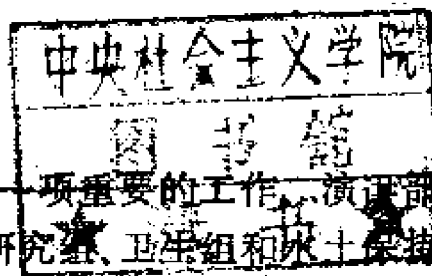 中央社会主义学院
图书馆
一项重要的工作、演进部
研究组、卫生组和水土保持